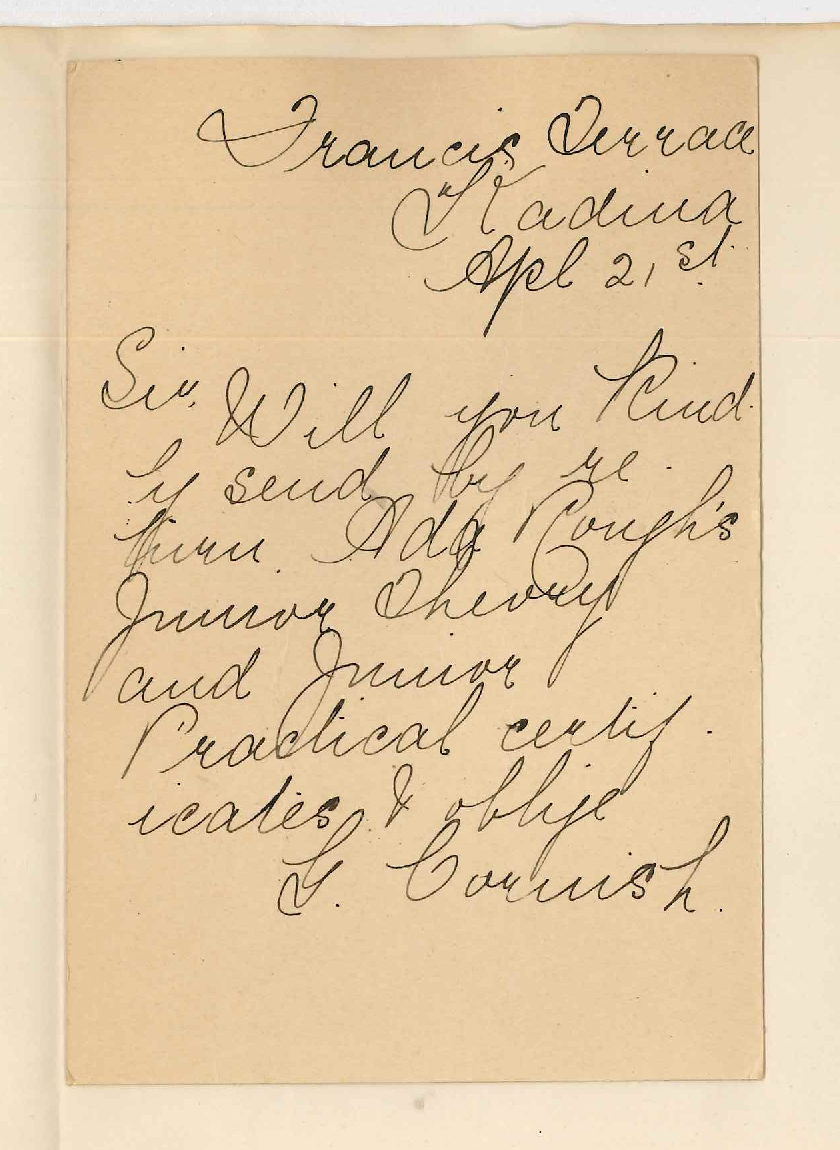 Francis Terrace
Kadina
Apl 21st
Sir, Will you kind
ly send by re
turn Ada Rough's
Junior Theory
and Junior
Practical certif
icates & oblige
G. Cornish.